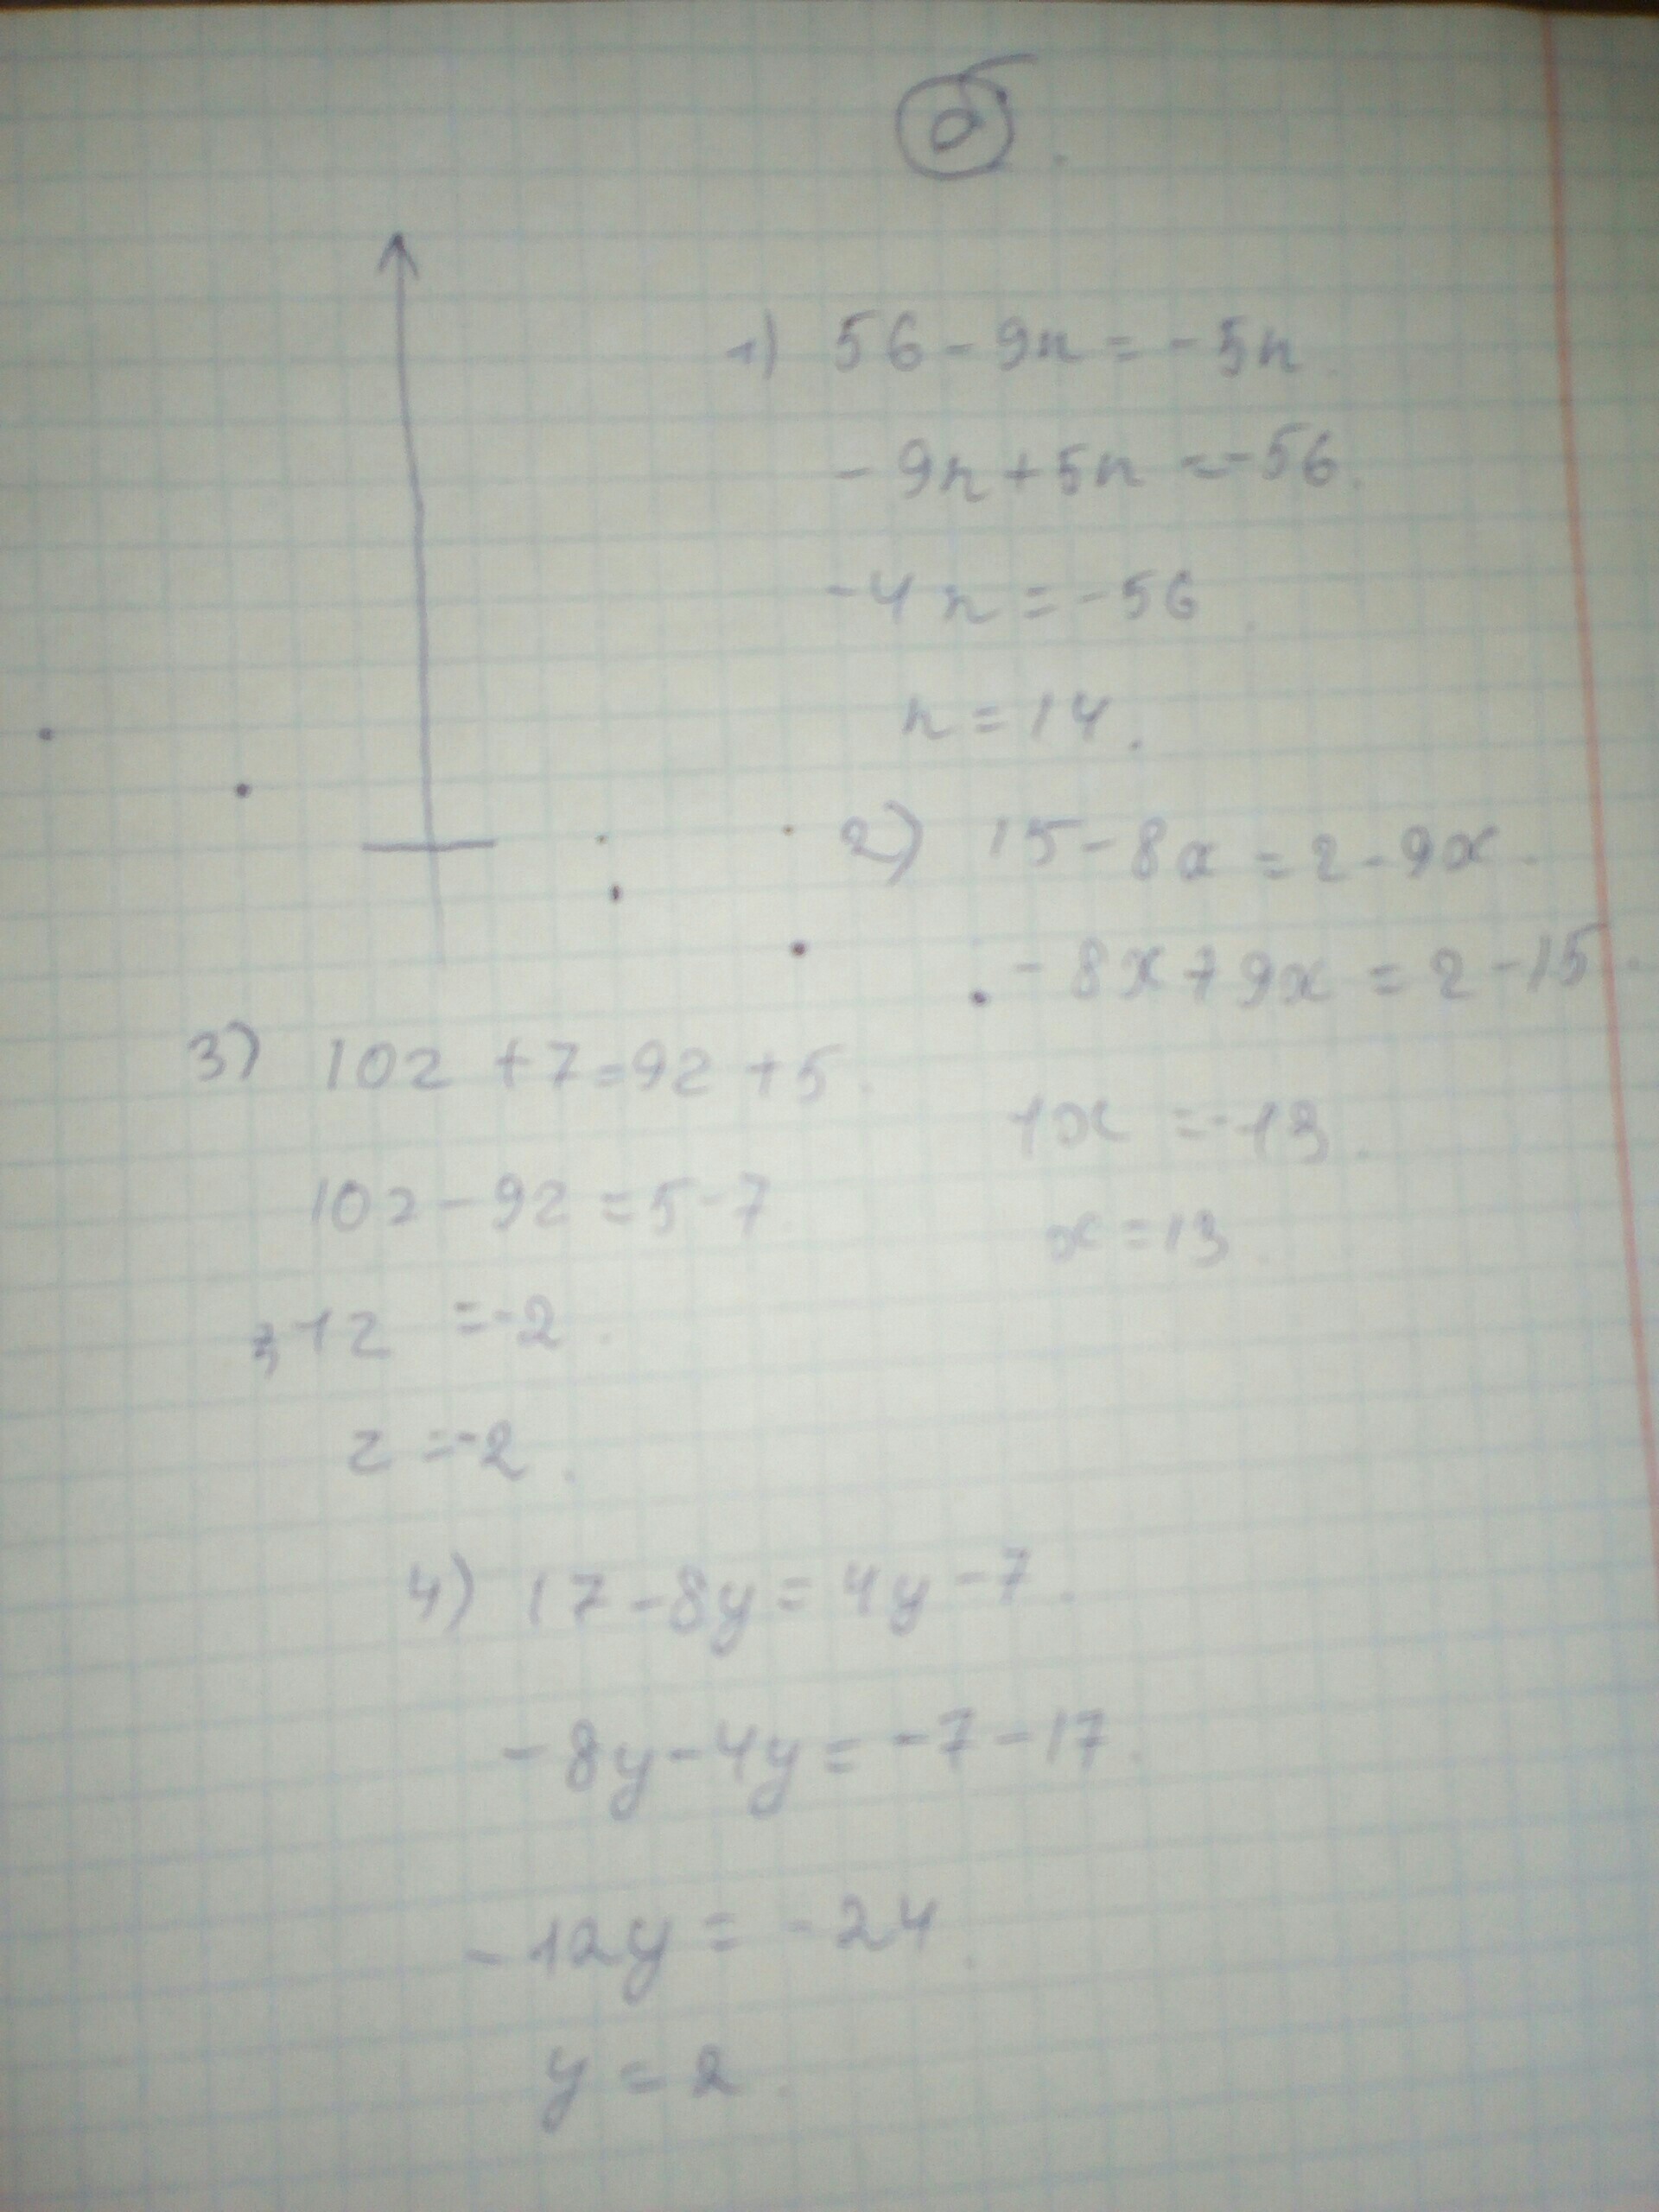 б.
1) 56 - 9n = - 5n.
- 9n + 5n = -56.
-4n = -56.
n = 14.
2) 15 - 8x = 2 - 9x.
- 8x + 9x = 2 - 15.
1x = -13.
x = 13.
3) 10z + 7 = 9z + 5.
10z - 9z = 5 - 7.
1z = -2.
z = -2.
4) 17 - 8y = 4y - 7.
- 8y - 4y = - 7 - 17.
- 12y = - 24.
y = 2.